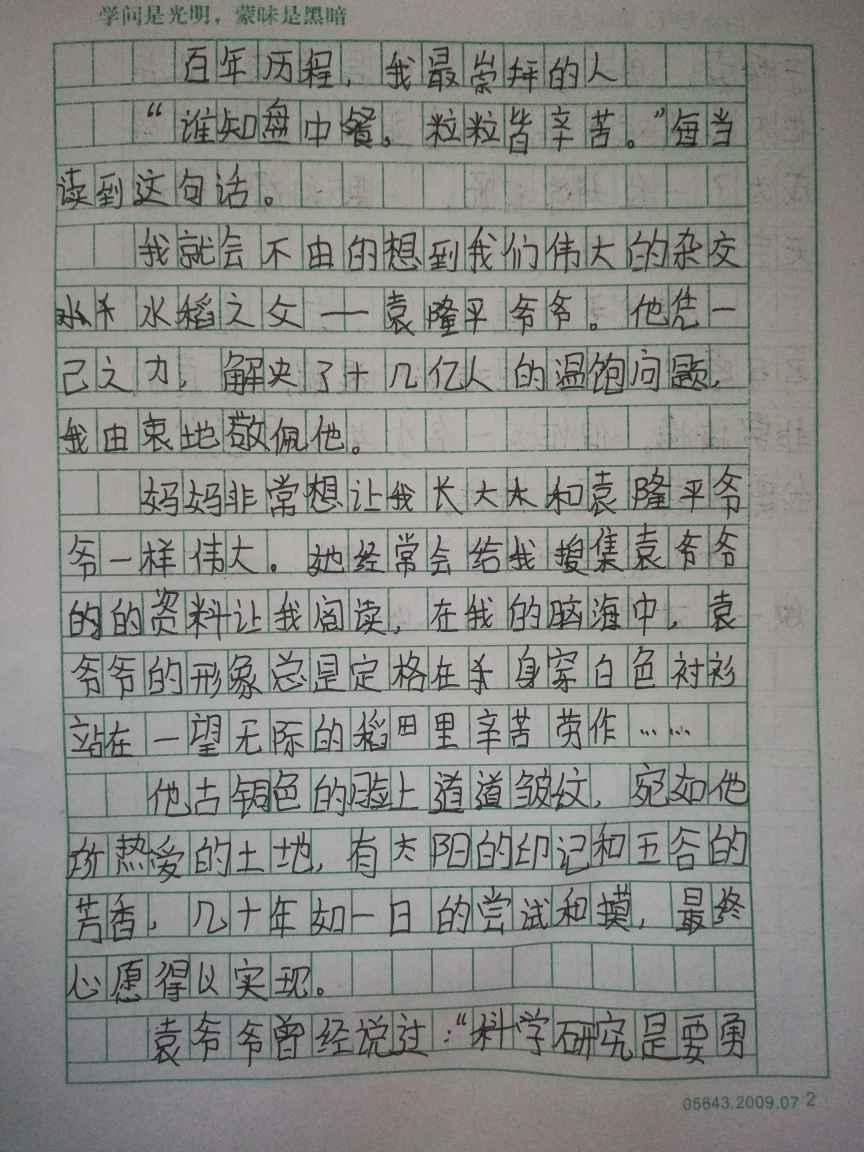 学问是光明，蒙昧是黑暗
百年历程，我最崇拜的人
“谁知盘中餐。粒粒皆辛苦。”每当
读到这句话。
我就会不由的想到我们伟大的杂交
水稻之父一袁隆平爷爷。他凭一
己之力，解决了十几亿人的温饱问题，
我由衷地敬佩他。
妈妈非常想让我长大木和袁隆平爷
爷一样伟大。她经常会给我搜集袁爷爷
的的资料让我阅读，在我的脑海中，袁
爷爷的形象总是定格在身穿白色衬衫
站在一望无际的稻田里辛苦劳作……
他古铜色的脸上道道皱纹，宛如他
所热爱的土地，有太阳的印记和五谷的
芳香，几十年如一日的尝试和摸，最终
心愿得以实现。
袁爷爷曾经说过：“科学研究是要勇
05643.2009.07 2